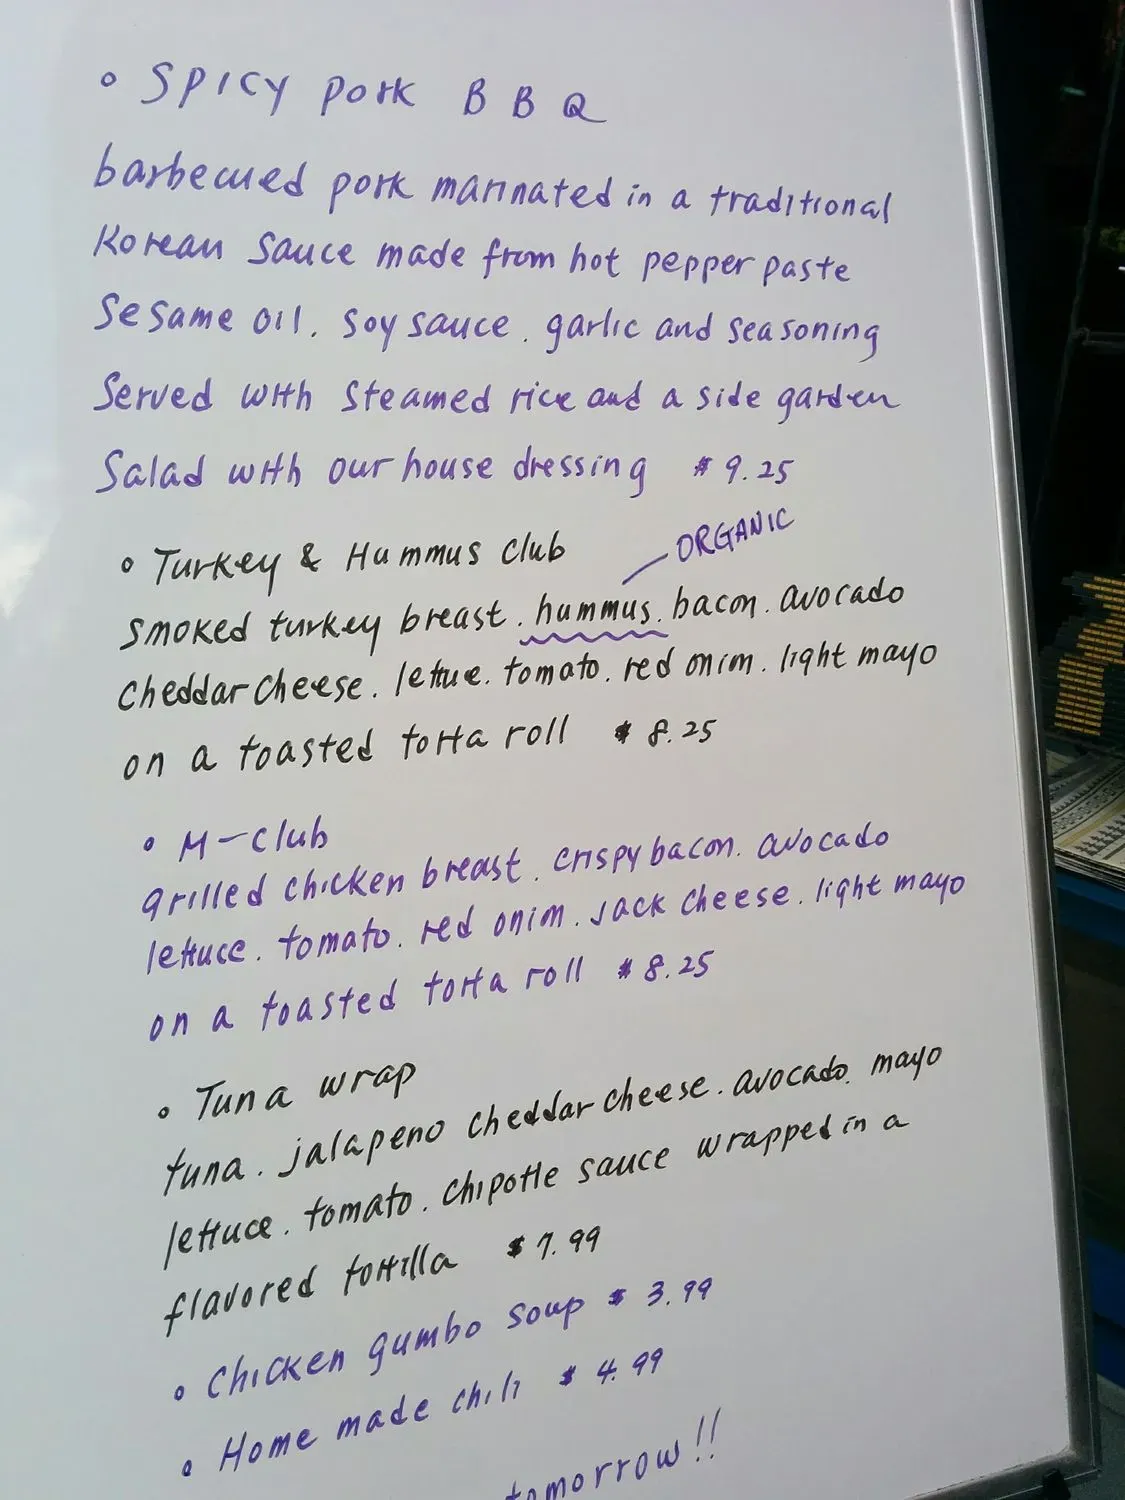 • Spicy pork BBQ
barbecued pork marinated in a traditional
Korean sauce made from hot pepper paste
Sesame oil. soy sauce. garlic and seasoning
Served with steamed rice and a side garden
Salad with our house dressing $9.25
• Turkey & Hummus club
ORGANIC
smoked turkey breast. hummus. bacon. avocado
cheddar cheese. lettue. tomato. red onion. light mayo
on a toasted torta roll $8.25
• M-club
grilled chicken breast. crispy bacon. avocado
lettuce. tomato. red onion. jack cheese. light mayo
on a toasted torta roll $8.25
• Tuna wrap
tuna. jalapeno cheddar cheese. avocado. mayo
lettuce. tomato. chipotle sauce wrapped in a
flavored tortilla $7.99
• Chicken gumbo soup $3.99
• Home made chili $4.99
tomorrow!!